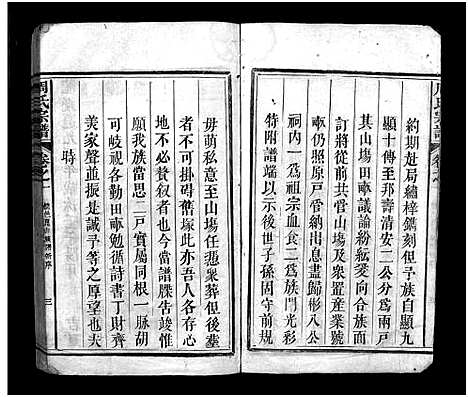 周氏宗譜
約期赴局繡梓鐫刻但予族自顯九
顯十傳至邦壽清安二公分爲兩戶
其山塲田畝議論紛紜爰向合族人
等訂將前共管山塲及衆置産業號
畝仍照原戶管納出息盡歸彤八公
祠內一爲祖宗血食二爲族門光彩
特附譜端以示于後世子孫固守前規
毋萌私意至山塲任憑衆葬但後塟
者不可掛碍舊塚此亦吾人各存心
地不必贅叙者也今當譜牒告竣惟
願我族當思二戶實屬同根一脉胡
可岐視各勤田畝勉循詩書丁財齊
美家聲並振是誠予等之厚望也夫
時
周氏宗譜
卷之一
三